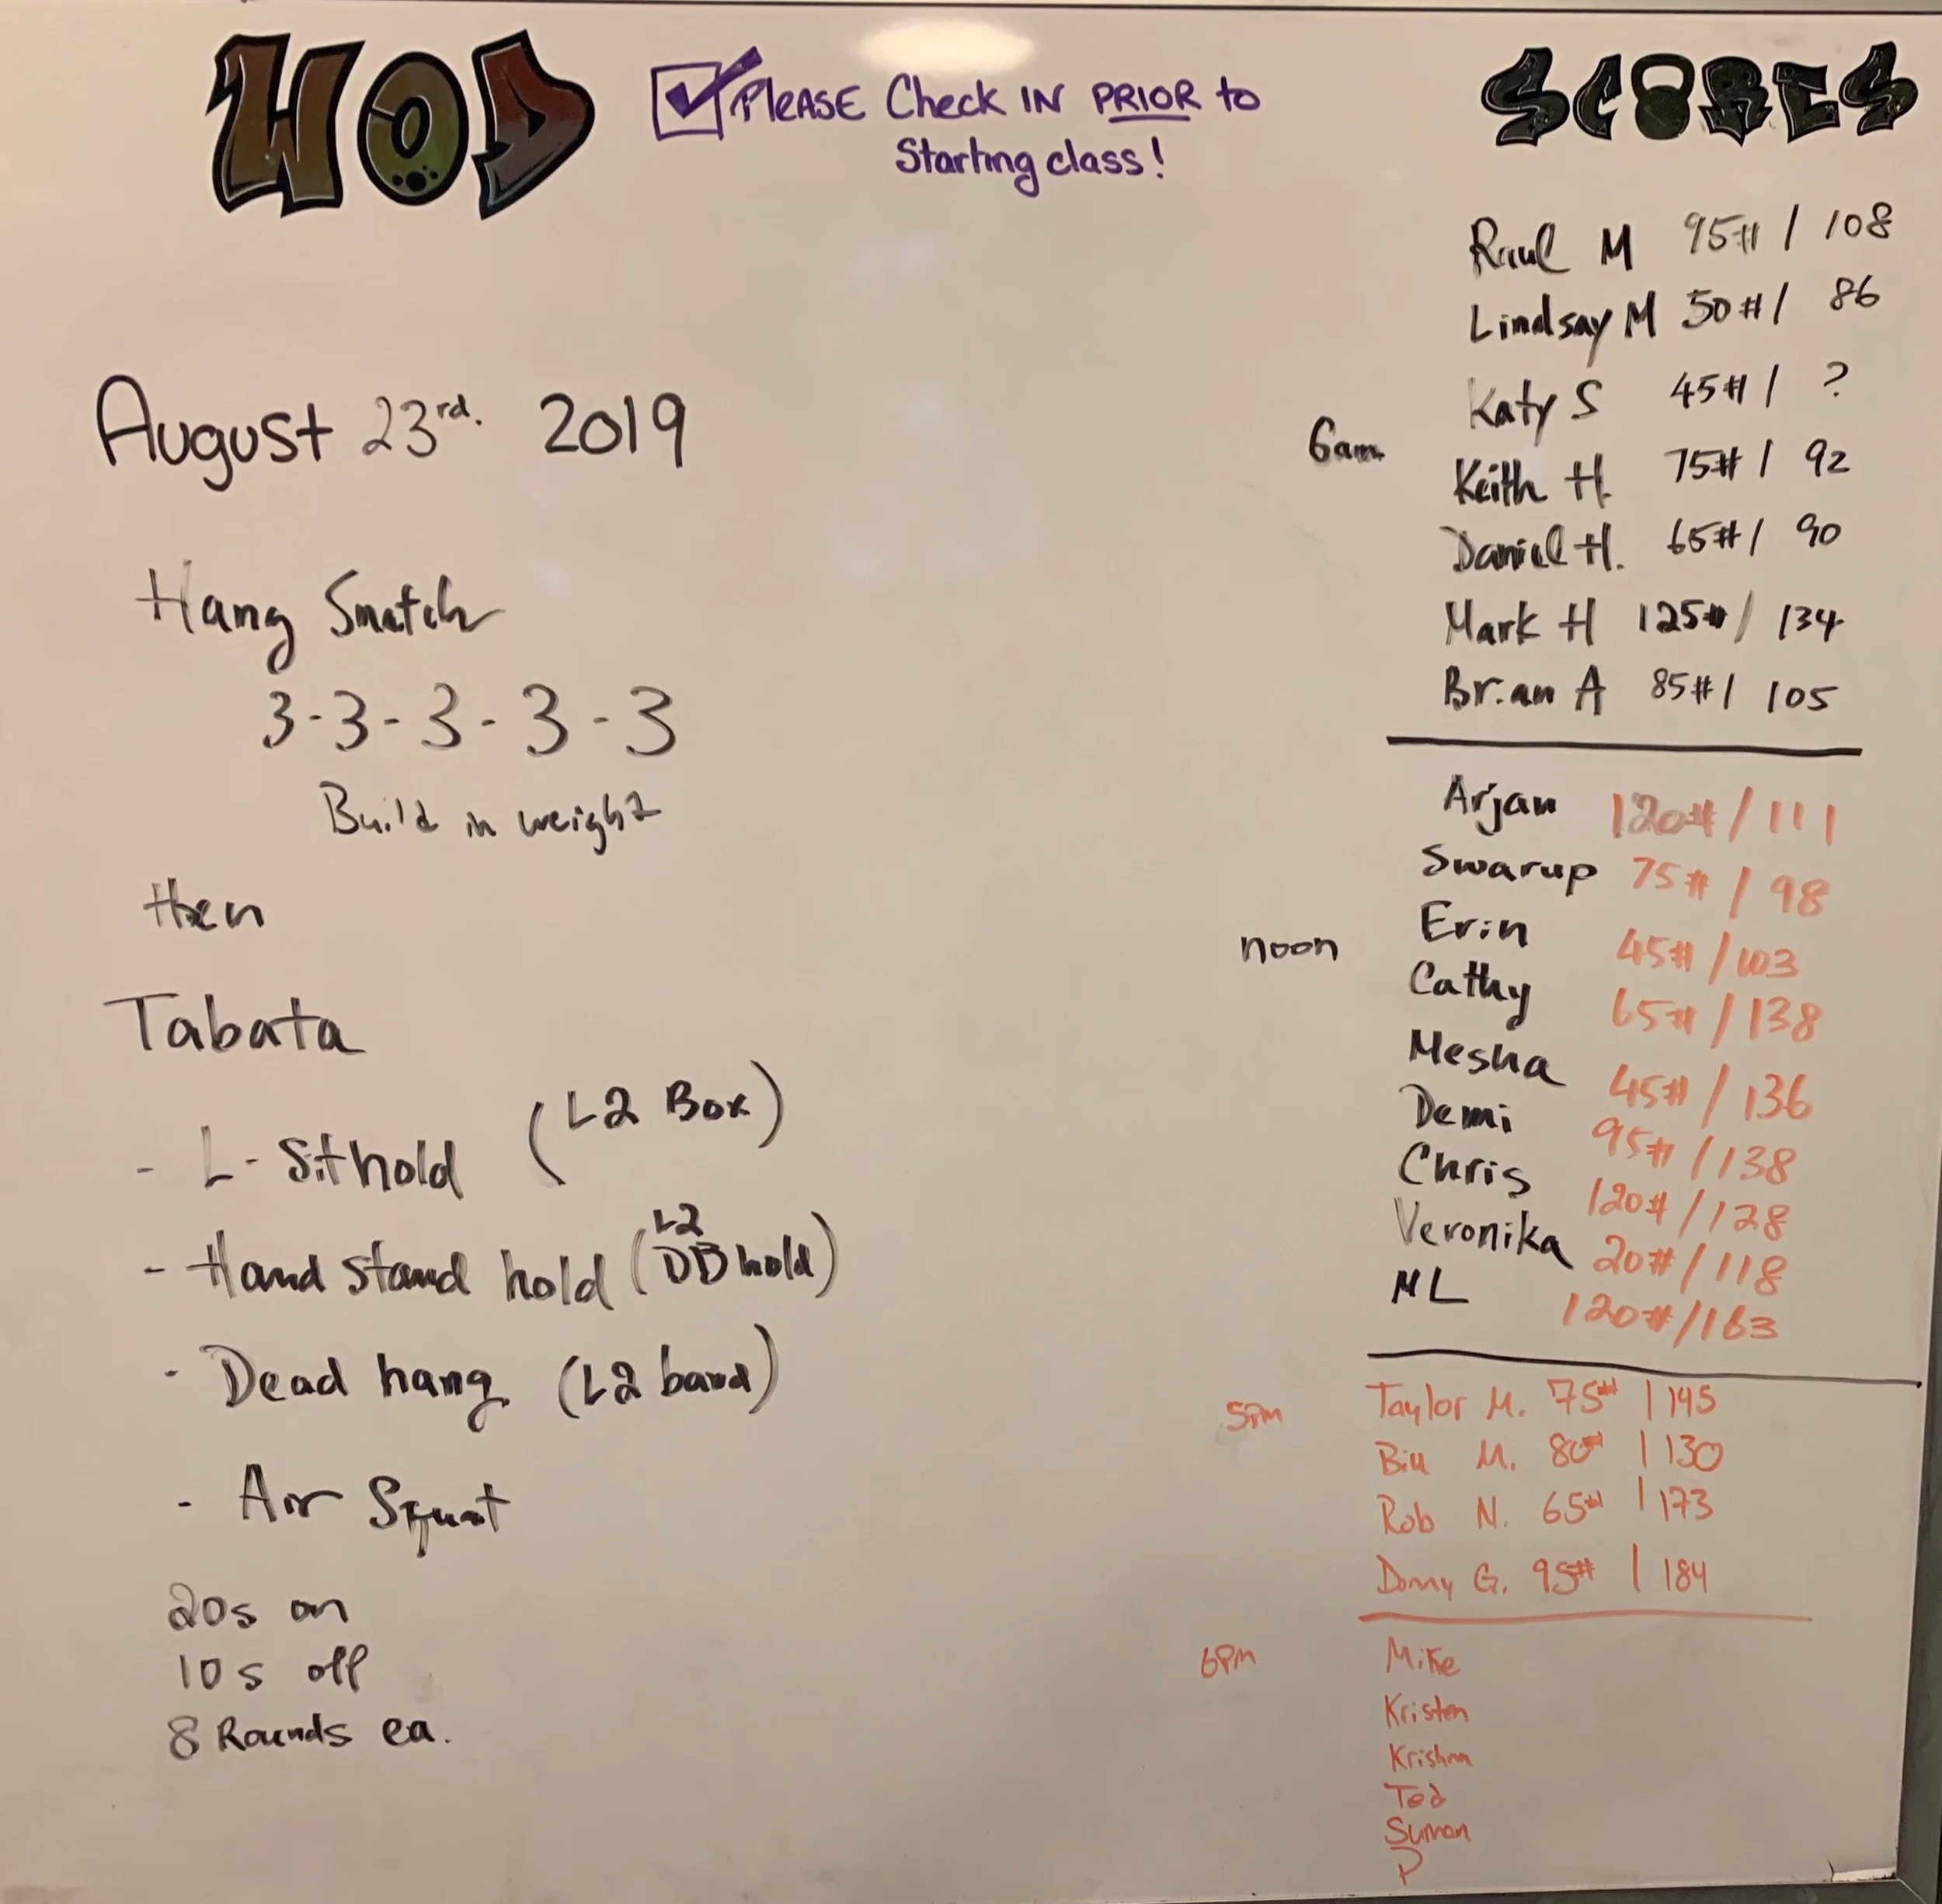 WOD
PLEASE Check IN PRIOR to
Starting class!
August 23rd. 2019
Hang Snatch
3-3-3-3-3
Build in weight
then
Tabata
- L-Sit hold (L2 Box)
- Hand stand hold (L2 DB hold)
- Dead hang (L2 band)
- Air Squat
20s on
10s off
8 Rounds ea.
SCORES
6am
Raul M 95# / 108
Lindsay M 50# / 86
Katy S 45# / ?
Keith H. 75# / 92
Daniel H. 65# / 90
Mark H 125# / 134
Brian A 85# / 105
noon
Arjan 120# / 111
Swarup 75# / 98
Erin 45# / 103
Cathy 65# / 138
Mesha 45# / 136
Demi 95# / 138
Chris 120# / 128
Veronika 20# / 118
ML 120# / 163
5pm
Taylor M. 75# | 145
Bill M. 80# | 130
Rob N. 65# | 173
Donny G. 95# | 184
6PM
Mike
Kristen
Krishna
Ted
Suman
P